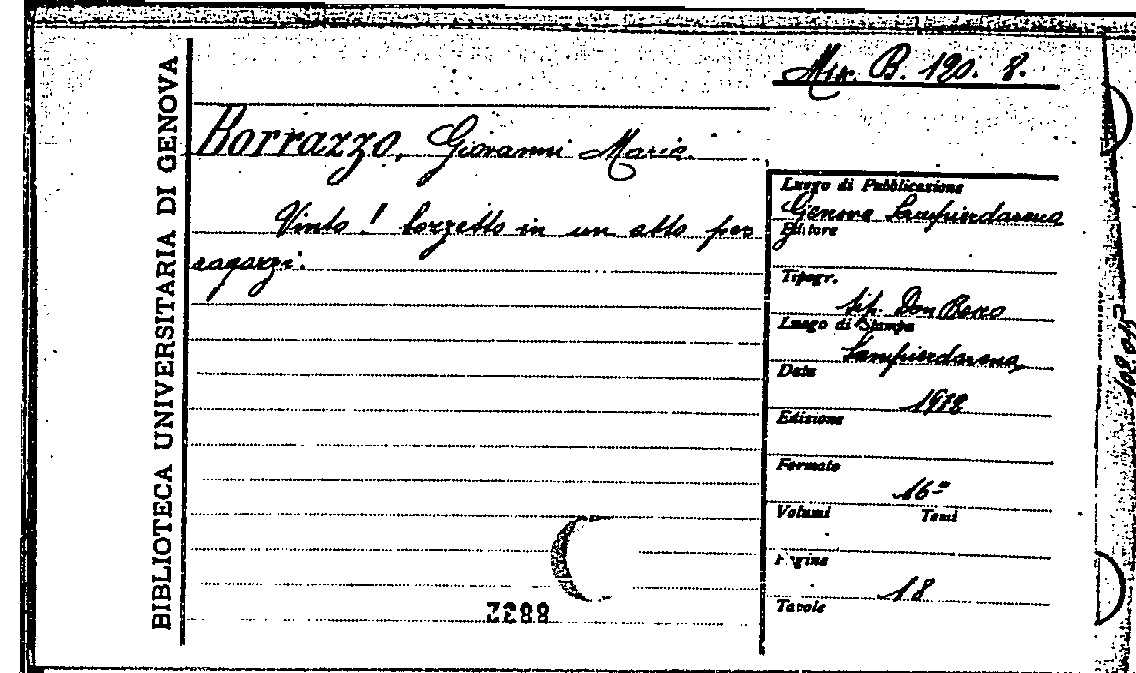 BIBLIOTECA UNIVERSITARIA DI GENOVA
Mix. B. 190. 8.
Borrazzo, Giovanni Maria.
Vinto! bozzetto in un atto per
ragazzi.
Luogo di Pubblicazione
Genova Sampierdarena
Editore
Tipogr.
tip. Don Bosco
Luogo di Stampa
Sampierdarena
Data
1912
Edizione
Formato
16º
Volumi Tomi
Pagine
18
Tavole